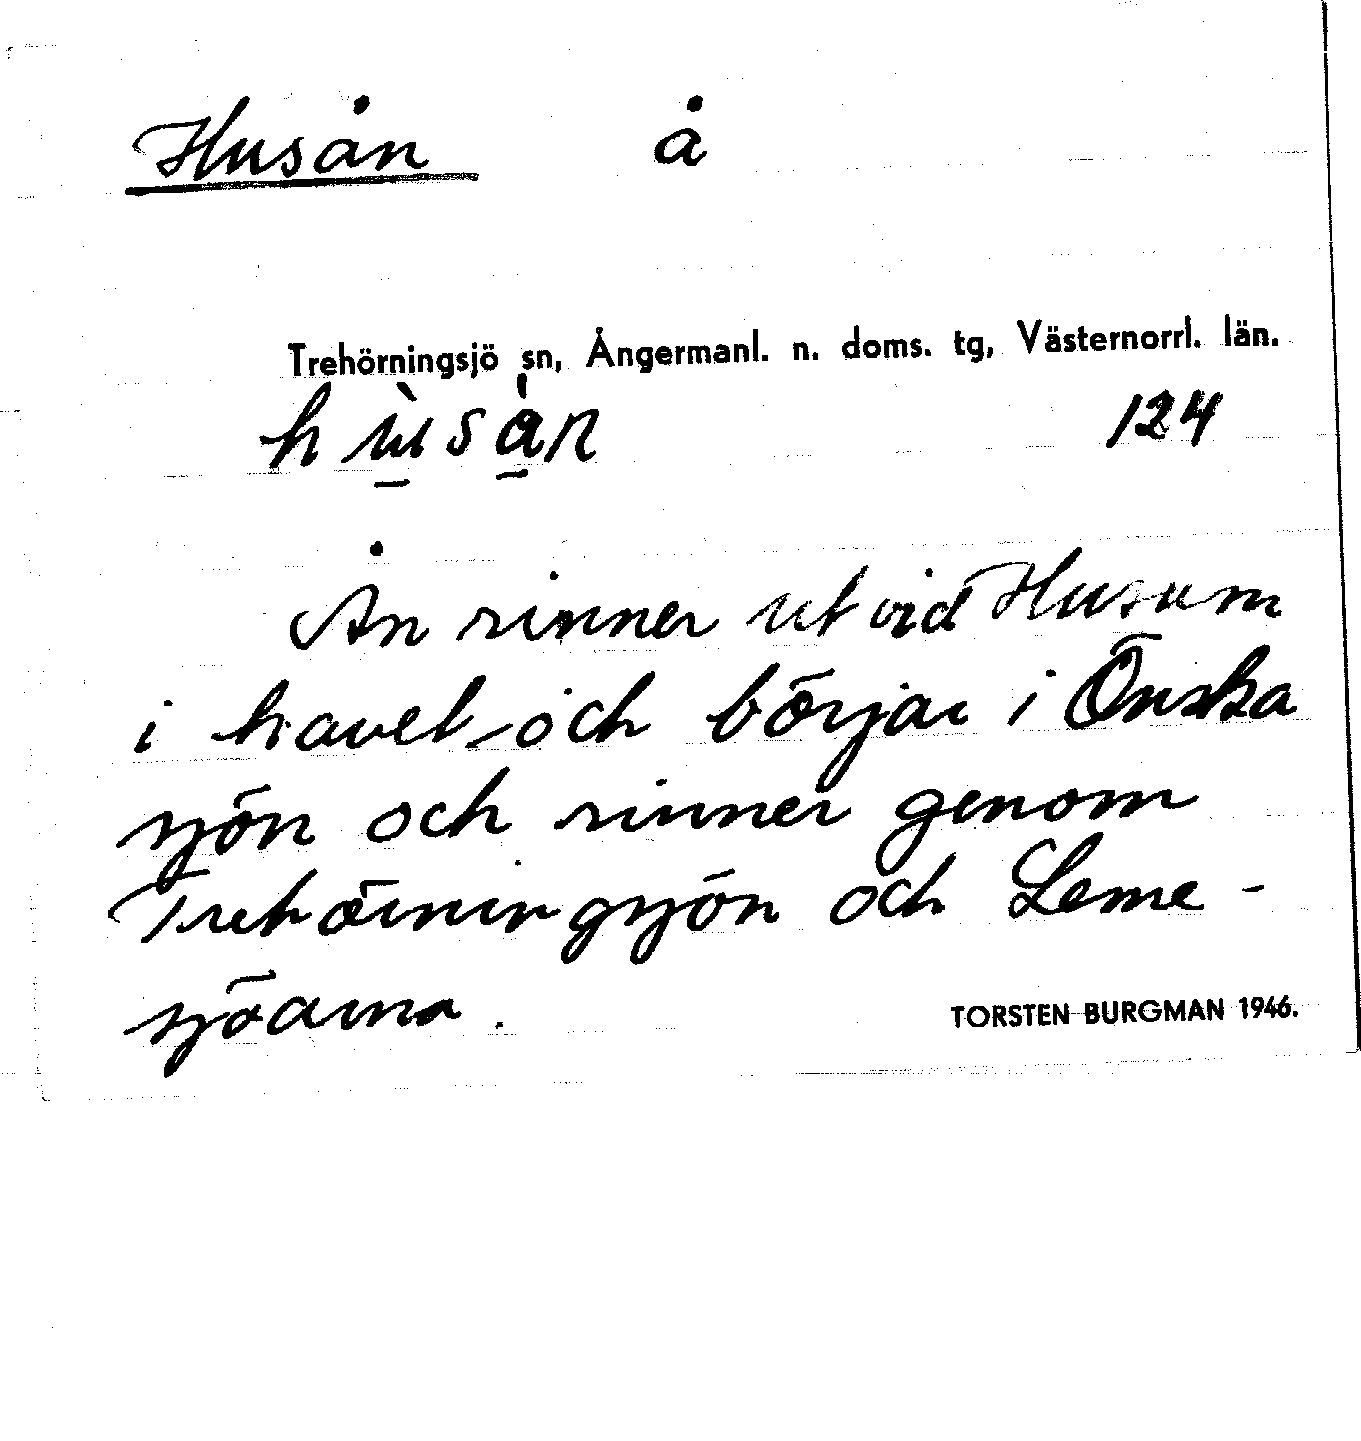 Husån å
Trehörningsjö sn, Ångermanl. n. doms. tg, Västernorrl. län.
124
Ån rinner ut vid Husum
i havet och börjar i Önska
sjön och rinner genom
Trehörningsjön och Leme-
sjöarna.
TORSTEN BURGMAN 1946.